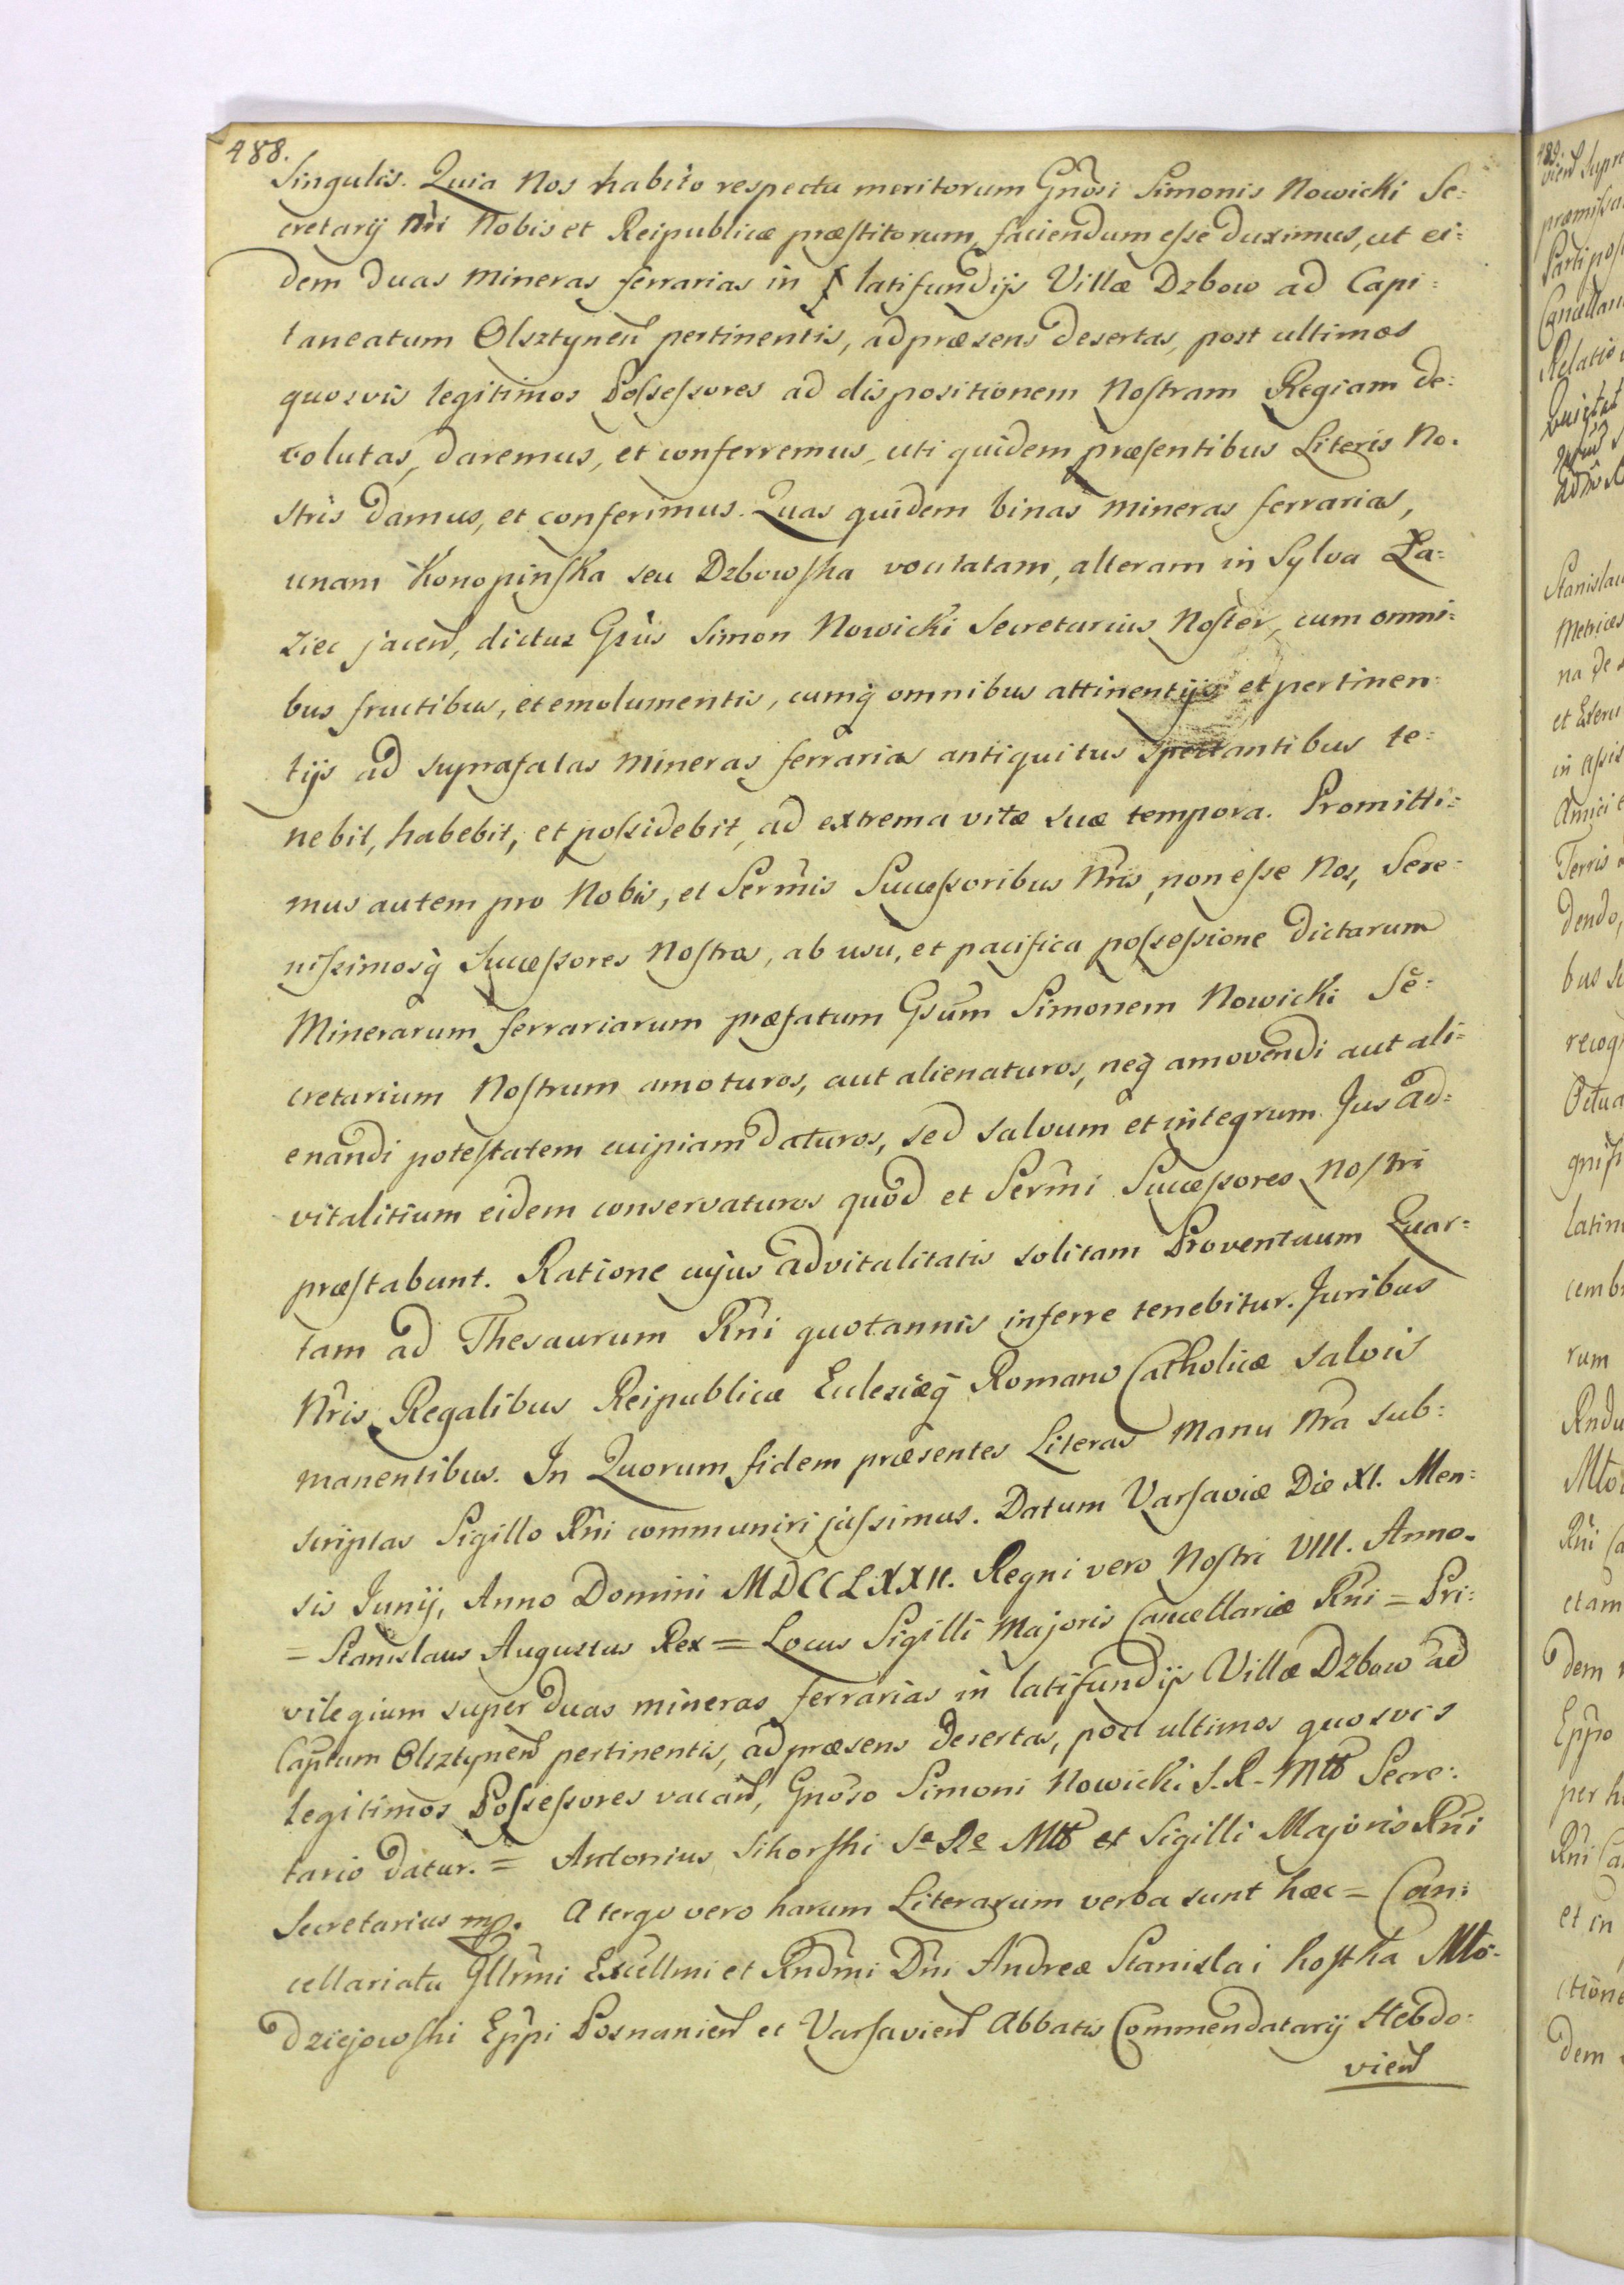 488.
Singulis. Quia Nos habito respectu meritorum Gnosi Simonis Nowicki Se:
cretarij Nri Nobis et Reipublicæ præstitorum, faciendum esse duximus, ut ei:
dem duas mineras ferrarias in latifundijs Villæ Dzbow ad Capi:
taneatum Olsztynen pertinentis, ad præsens desertas, post ultimos
quosvis legitimos Possessores ad dispositionem Nostram Regiam de:
volutas, daremus, et conferremus, uti quidem præsentibus Literis No.
stris damus, et conferimus. Quas quidem binas mineras ferrarias,
unam Konopinska seu Dzbowska vocitatam, alteram in Sylva Ła:
ziec jacen, dictus Gsus Simon Nowicki Secretarius Noster, cum omni:
bus fructibus, et emolumentis, cumq omnibus attinentijs et pertinen:
tijs ad suprafatas mineras ferrarias antiquitus spectantibus te:
nebit, habebit, et possidebit, ad extrema vitæ suæ tempora. Promitti:
mus autem pro Nobis, et Sermis Successoribus Nris, non esse Nos, Sere:
nissimosq Successores Nostros, ab usu, et pacifica possessione dictarum
Minerarum ferrariarum præfatum Gsum Simonem Nowicki Se:
cretarium Nostrum amoturos, aut alienaturos, neq amovendi aut ali:
enandi potestatem cuipiam daturos, sed salvum et integrum Jus ad:
vitalitium eidem conservaturos quod et Sermi Successores Nostri
præstabunt. Ratione cujus advitalitatis solitam Proventuum Quar:
tam ad Thesaurum Rni quotannis inferre tenebitur. Juribus
Nris Regalibus Reipublicæ Eclesiæq Romano Catholicæ salvis
manentibus. In Quorum fidem præsentes Literas manu Nra sub:
scriptas Sigillo Rni communiri jussimus. Datum Varsaviæ Die XI. Men:
sis Junij, Anno Domini MDCCLXXII. Regni vero Nostri VIII. Anno.
= Stanislaus Augustus Rex = Locus Sigilli Majoris Cancellariæ Rni = Pri:
vilegium super duas mineras ferrarias in latifundijs Villæ Dzbow ad
Captum Olsztynen pertinentis, ad præsens desertas, post ultimos quosvis
legitimos Possessores vacan, Gnoso Simoni Nowicki S. R. Mtts Secre:
tario datur. = Antonius Sikorski Sæ Ræ Mtts et Sigilli Majoris Rni
Secretarius mp. A tergo vero harum Literarum verba sunt hæc = Can:
cellariatu Illrmi Excellmi et Rndmi Dni Andreæ Stanislai Kostka Mło:
dziejowski Eppi Posnanien et Varsavien Abbatis Commendatarij Hebdo:
vien